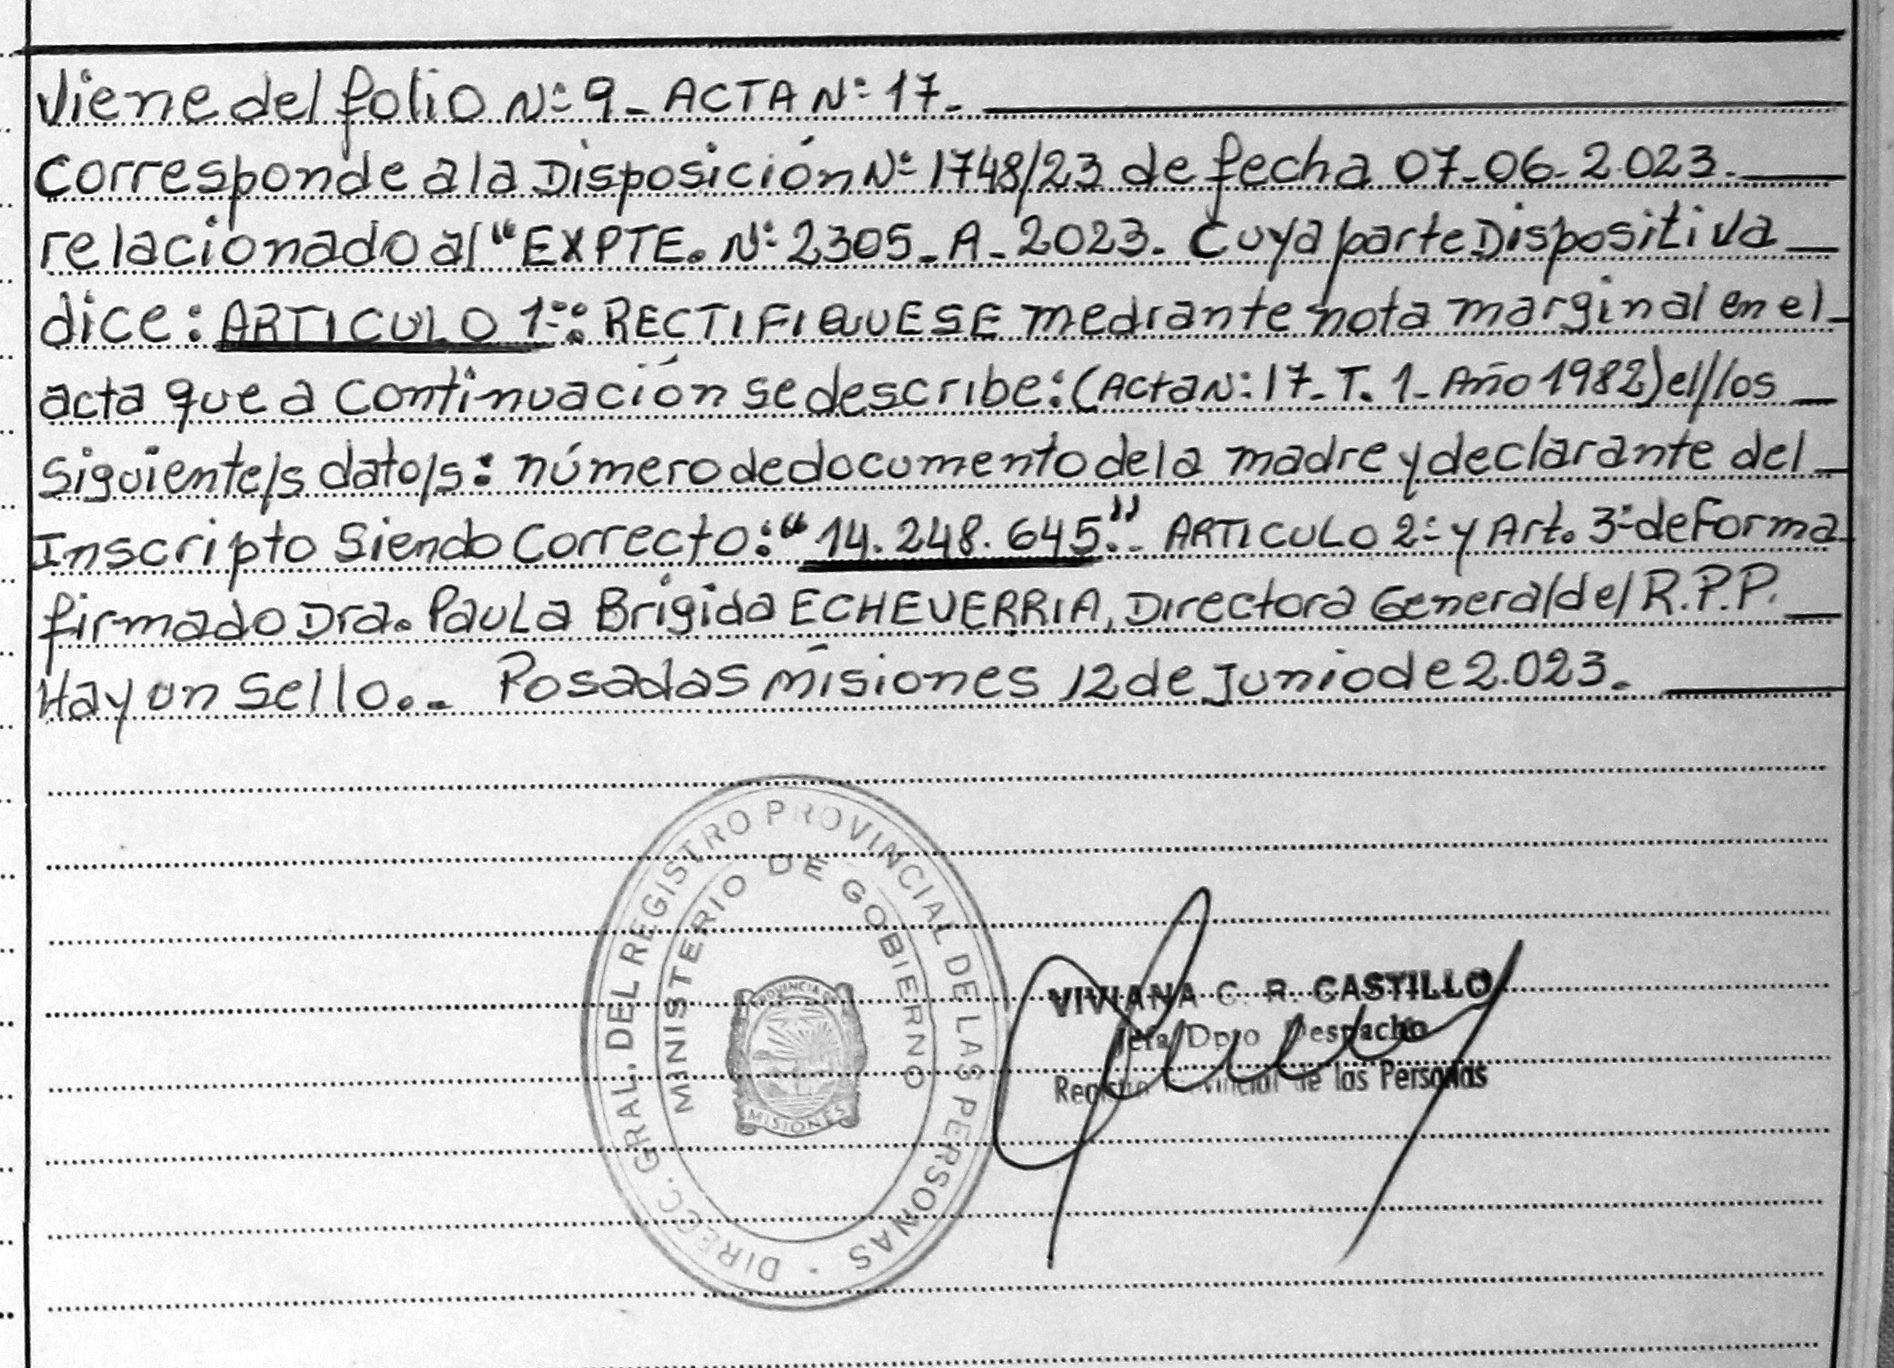 Viene del folio Nº 9_ ACTA Nº 17_
Corresponde a la Disposición Nº 1748/23 de fecha 07_06_2.023.
relacionado al "EXPTE. Nº 2305_A_2023. Cuya parte Dispositiva
dice: ARTICULO 1º: RECTIFIQUESE mediante nota marginal en el
acta que a continuación se describe: (Acta Nº 17_T. 1_Año 1982) el/los
siguiente/s dato/s: número de documento de la madre y declarante del
Inscripto Siendo Correcto: "14.248.645". ARTICULO 2º y Art. 3º de Forma
firmado Dra. Paula Brígida ECHEVERRIA, Directora General del R.P.P.
Hay un Sello._ Posadas Misiones 12 de Junio de 2.023.
DIRECC. GRAL. DEL REGISTRO PROVINCIAL DE LAS PERSONAS
MINISTERIO DE GOBIERNO
PROVINCIA DE
MISIONES
VIVIANA C. R. CASTILLO
Jefa Dpto Despacho
Registro Provincial de las Personas